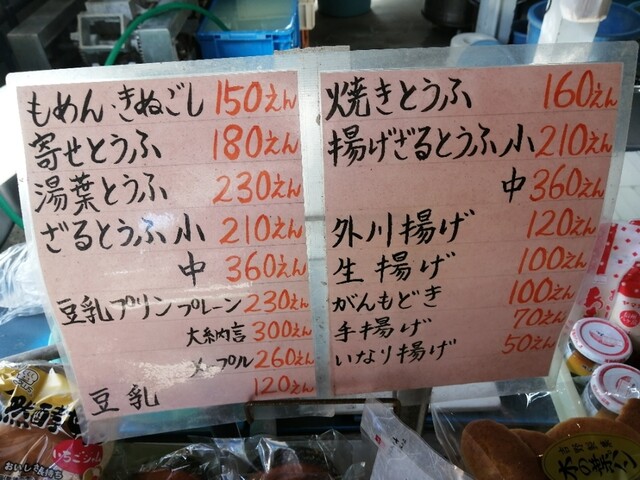 もめん・きぬごし 150えん
寄せとうふ 180えん
湯葉とうふ 230えん
ざるとうふ 小 210えん
中 360えん
豆乳プリン プレーン 230えん
大納言 300えん
メープル 260えん
豆乳 120えん
焼きとうふ 160えん
揚げざるとうふ 小 210えん
中 360えん
外川揚げ 120えん
生揚げ 100えん
がんもどき 100えん
手揚げ 70えん
いなり揚げ 50えん
然酵母
いちごジャム
おいしさ長持ち
吉野野菜
木の葉パン